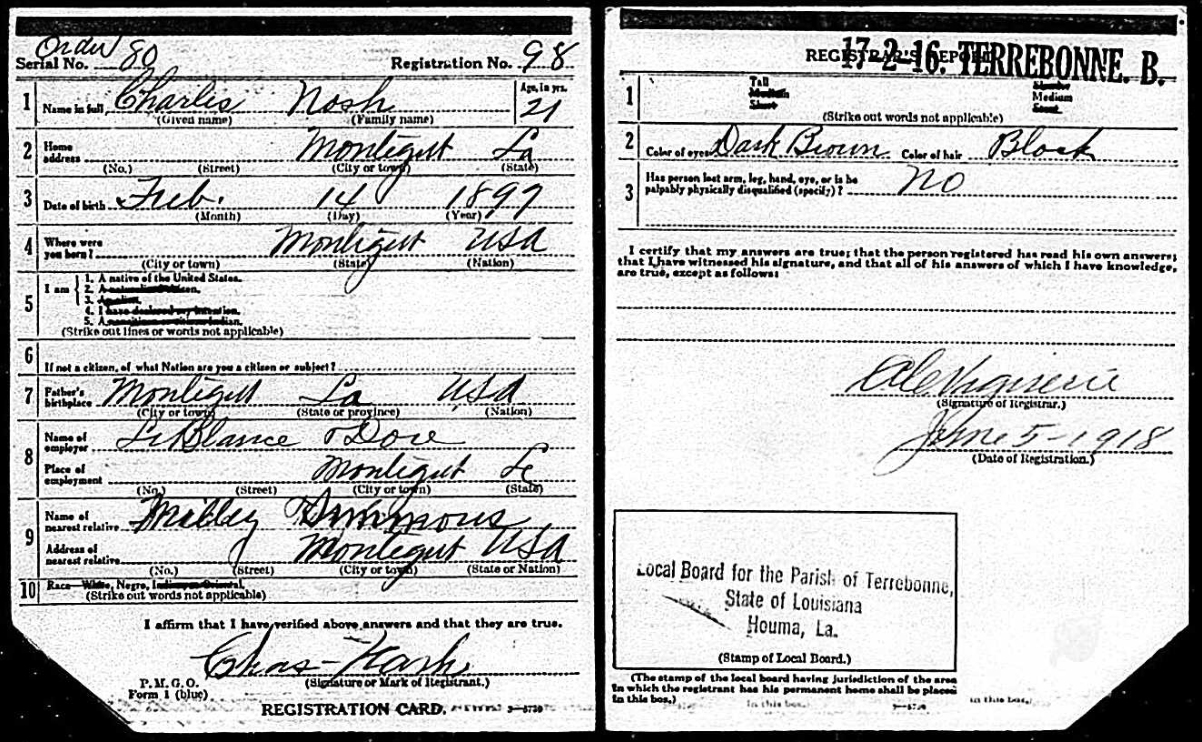 Order
Serial No. 80 Registration No. 98
1 Name in full Charlis Nash Age, in yrs. 21
(Given name) (Family name)
2 Home address Montegut La
(No.) (Street) (City or town) (State)
3 Date of birth Feb. 14 1897
(Month) (Day) (Year)
4 Where were you born? Montegut USA
(City or town) (State) (Nation)
5 I am
1. A native of the United States.
2. A naturalized citizen.
3. An alien.
4. I have declared my intention.
5. A noncitizen or citizen Indian.
(Strike out lines or words not applicable)
6 If not a citizen, of what Nation are you a citizen or subject?
7 Father's birthplace Montegut La USA
(City or town) (State or province) (Nation)
8 Name of employer
Place of employment Montegut
(No.) (Street) (City or town) (State)
9 Name of nearest relative Simmons
Address of nearest relative Montegut USA
(No.) (Street) (City or town) (State or Nation)
10 Race—White, Negro, Indian, or Oriental.
(Strike out words not applicable)
I affirm that I have verified above answers and that they are true.
Chas
(Signature or Mark of Registrant.)
P. M. G. O.
Form 1 (blue)
REGISTRATION CARD.
REGISTRAR'S REPORT
17-2-16. TERREBONNE. B.
1 Tall Slender
Medium Medium
Short Stout
(Strike out words not applicable)
2 Color of eyes Dark Brown Color of hair Black
3 Has person lost arm, leg, hand, eye, or is he
palpably physically disqualified (specify)? No
I certify that my answers are true; that the person registered has read his own answers;
that I have witnessed his signature, and that all of his answers of which I have knowledge,
are true, except as follows:
(Signature of Registrar.)
June 5-1918
(Date of Registration.)
Local Board for the Parish of Terrebonne,
State of Louisiana
Houma, La.
(Stamp of Local Board.)
(The stamp of the local board having jurisdiction of the area
in which the registrant has his permanent home shall be placed
in this box.)